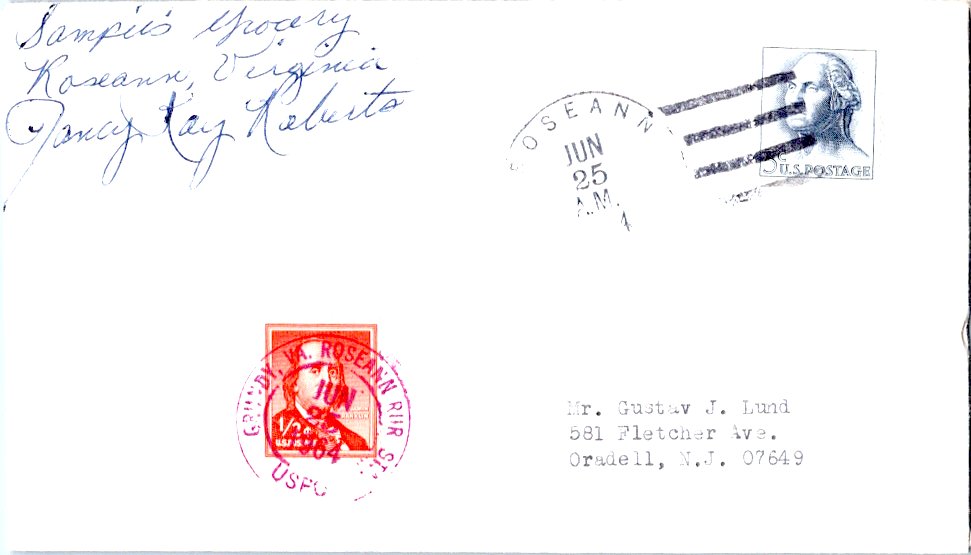 Sampies Grocery
Roseann, Virginia
Nancy Kay Roberts
ROSEANN
JUN
25
A.M.
5c U.S. POSTAGE
GRUNDY, VA. ROSEANN RUR. STA.
JUN
25
1964
USPO
1/2
Mr. Gustav J. Lund
581 Fletcher Ave.
Oradell, N.J. 07649